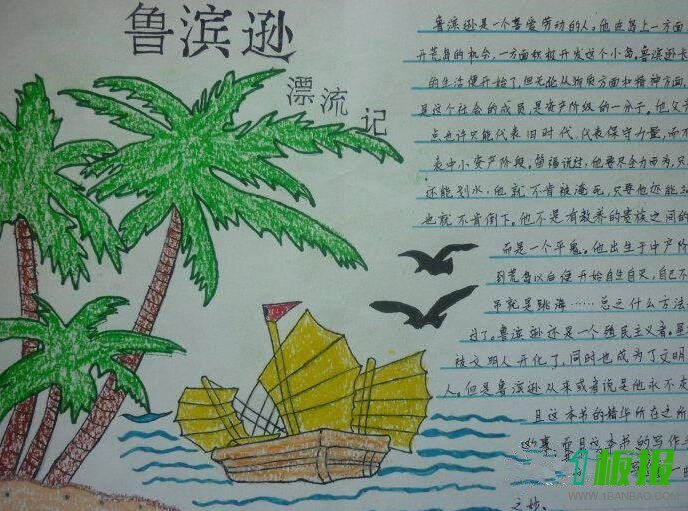 鲁滨逊
漂流记
鲁滨逊是一个喜爱劳动的人。他在岛上一方面
开荒岛的机会,一方面积极开发这个小岛,鲁滨逊卡
的生活便开始了,但无论从物质方面和精神方面,
是这个社会的成员,是资产阶级的一分子。他
点也许只能代表旧时代,代表保守力量,而不
表中小资产阶段。笛福说过,他要尽全力而为,只
还能划水,他就不肯被淹死,只要他还能
也就不肯倒下。他不是有教养的贵族之间的
而是一个平
他出生于中产阶
到荒岛以后便开始自生自灭,自己不
吊就是跳海……总之什么方法
鲁滨逊还是一个殖民主义者。
被文明人开化了,同时也成为了文明
人。但是鲁滨逊从来或者说是他永不
且这本书的精华所在之所
而且这本书的写作
之妙。
1板报
WWW.1BANBAO.COM